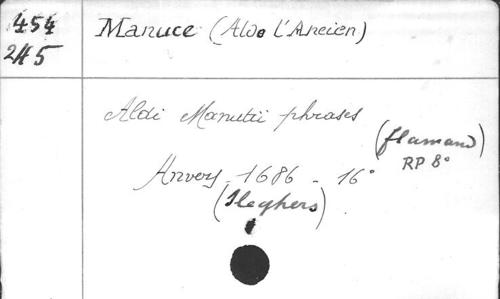 454
245
Manuce (Aldo L'Ancien)
Aldi Manutii phrases
(flamand)
RP 8°
Anvers - 1686 - 16°
(Sleghers)